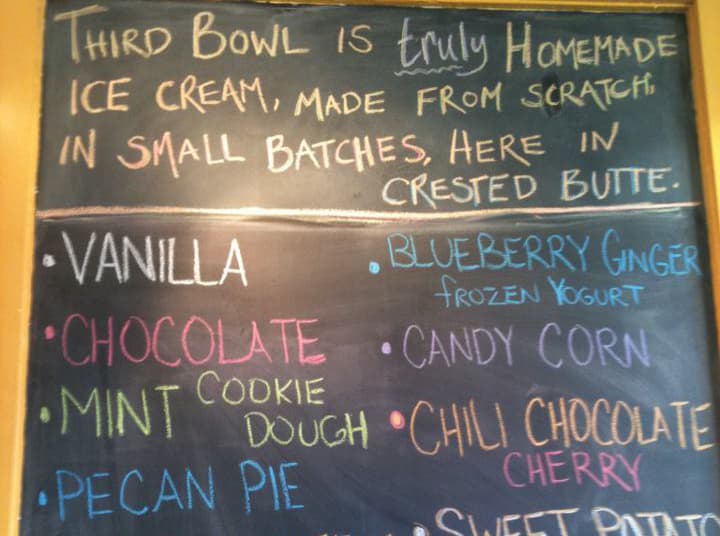 THIRD BOWL IS truly HOMEMADE
ICE CREAM, MADE FROM SCRATCH,
IN SMALL BATCHES, HERE IN
CRESTED BUTTE.
• VANILLA
• CHOCOLATE
• MINT COOKIE
DOUGH
• PECAN PIE
• BLUEBERRY GINGER
FROZEN YOGURT
• CANDY CORN
• CHILI CHOCOLATE
CHERRY
• SWEET POTATO